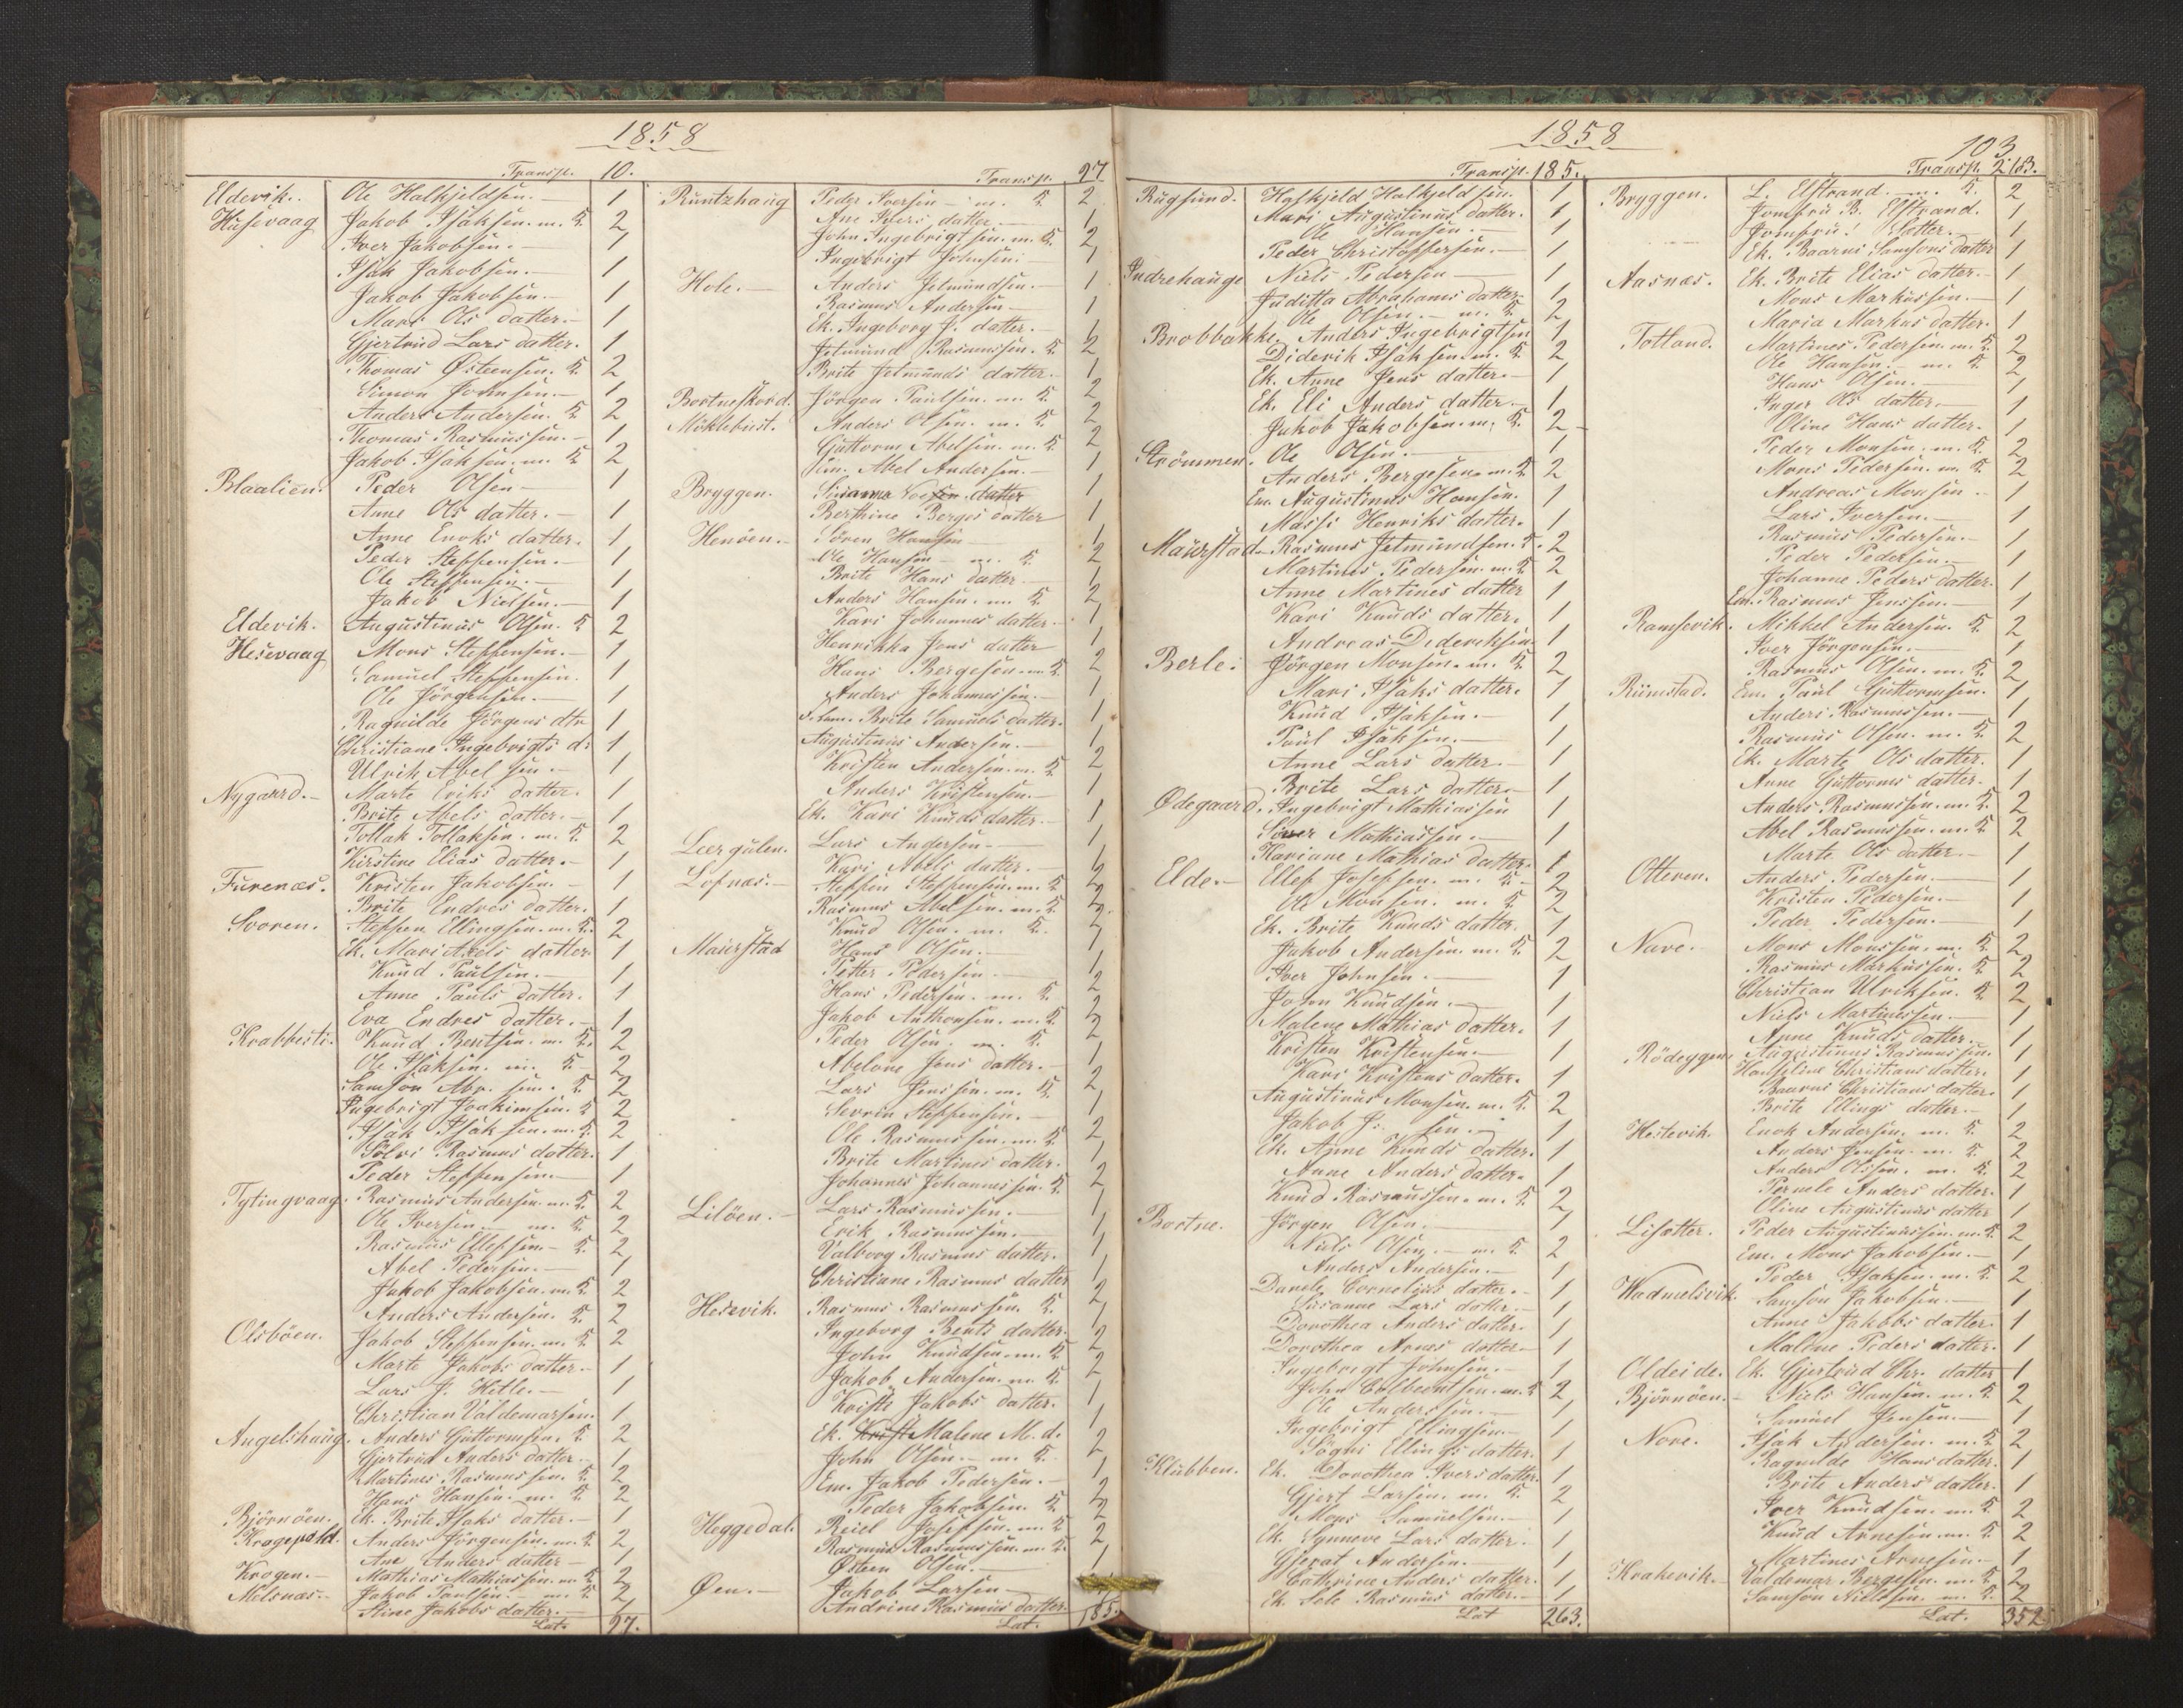 1858
Transp. 10.
Eldevik. Ole Halkjeldsen. 1
Husevaag Jakob Isaksen. m. K. 2
Iver Jakobsen. 1
Isak Jakobsen. 1
Jakob Jakobsen. 1
Mari Ols datter. 1
Gjertrud Lars datter. 1
Thomas Østensen. K. 2
Simon Johnsen. 1
Anders Andersen. K. 2
Thomas Rasmussen. 1
Jakob Isaksen. m. K. 2
Blaalien. Peder Olsen 1
Anne Ols datter. 1
Anne Enoks datter. 1
Peder Steffensen. 1
Ole Steffensen. 1
Jakob Nielsen. 1
Eldevik. Augustinus Olsen. K. 2
Hesevaag Mons Steffensen. 1
Samuel Steffensen. 1
Ole Jörgensen. 1
Ragnilde Jörgens dtr 1
Christiane Ingebrigts d: 1
Ulrik Abelsen. 1
Nygaard. Marte Eriks datter. 1
Brite Abels datter. 1
Tollak Tollaksen. m. K. 2
Kirstine Elias datter. 1
Furenæs. Kristen Jakobsen. 1
Brite Endres datter. 1
Svoren. Steffen Ellingsen. m. K. 2
Ek. Mari Axels datter. 1
Knud Paulsen. 1
Anne Pauls datter. 1
Eva Endres datter. 1
Krabbesti. Knud Bentsen. m. K. 2
Ole Isaksen. m. K. 2
Samson Abr. sen. K. 2
Ingebrigt Joakimsen. K. 2
Isak Isaksen. m. K. 2
Sølvi Rasmus datter. 1
Peder Steffensen. 1
Tytingvaag. Rasmus Andersen. m. K. 2
Ole Iversen. m. K. 2
Rasmus Ellefsen. K. 2
Abel Pedersen. 1
Jakob Jakobsen. m. K. 2
Anders Andersen. K. 2
Olsböen. Jakob Steffensen. m. K. 2
Marte Jakobs datter. 1
Lars J. Hetle. 1
Christian Valdemarsen. 1
Angelshaug. Anders Guttormsen. K. 2
Gjertrud Anders datter. 1
Martines Rasmussen. K. 2
Hans Hansen. m. K. 2
Björnöen. Ek. Brite Isaks datter. 1
Kragepold. Anders Jörgensen. m. K. 2
Ane Anders datter 1
Krogen. Mathias Mathiassen. m. K. 2
Melsnæs. Jakob Paulsen. m. K. 2
Stine Jakobs datter. 1
Lat. 97.
Transp. 97
Runtzhaug Peder Iversen m. K. 2
Ane Ivers datter. 1
John Ingebrigtsen. m. K. 2
Ingebrigt Johnsen. 1
Hole. Anders Jetmundsen. 1
Rasmus Andersen 1
Ek. Ingeborg J. datter. 1
Jetmund Rasmussen. K. 2
Brite Jetmunds datter. 1
Bortneskord. Jörgen Paulsen. m. K. 2
Möklebust. Anders Olsen. m. K. 2
Guttorm Abelsen. m. K. 2
Em. Abel Andersen. 1
Bryggen. Susanna datter 1
Berthine Berges datter 1
Henöen. Sören Hansen 1
Ole Hansen m. K. 2
Brite Hans datter. 1
Anders Hansen. m. K. 2
Kari Johannes datter. 1
Henrikka Jens datter 1
Hans Bergesen. m. K. 2
Anders Johannessen. 1
Brite Samuels datter. 1
Augustinus Andersen. 1
Kristen Andersen. m. K. 2
Anders Kristensen. 1
Ek. Kari Knuds datter. 1
Leergulen. Lars Andersen 1
Kari Abels datter. 1
Lofnæs. Steffen Steffensen. m. K. 2
Rasmus Abelsen. m. K. 2
Knud Olsen. m. K. 2
Maurstad Hans Olsen. 1
Petter Pedersen. 1
Hans Pedersen. m. K. 2
Jakob Anthonsen. m. K. 2
Peder Olsen. m. K. 2
Abelone Jens datter. 1
Lars Jenssen. m. K. 2
Severin Steffensen. 1
Ole Rasmussen. m. K. 2
Brite Martines datter. 1
Johannes Johannessen. K. 2
Lilöen. Lars Rasmussen. 1
Erik Rasmussen. 1
Valborg Rasmus datter. 1
Christiane Rasmus datter 1
Hesevik. Rasmus Rasmussen. K. 2
Ingeborg Bents datter. 1
John Knudsen. m. K. 2
Jakob Andersen. m. K. 2
Kristi Jakobs datter. 1
Ek. Krist Malene M. d. 1
John Olsen. m. K. 2
Em. Jakob Pedersen. 1
Peder Jakobsen. K. 2
Heggedal. Reiel Josefsen. m. K. 2
Rasmus Rasmussen. m. K. 2
Østen Olsen. 1
Øen. Jakob Larsen 1
Andrine Rasmus datter. 1
Lat. 185.
1858
103
Transp. 185.
Rugsund. Halkjeld Halkjeldsen. 1
Mari Augustinus datter. 1
Ole Hansen. 1
Peder Christoffersen. 1
Indrehauge Niels Pedersen 1
Juditta Abrahams datter 1
Ole Olsen. m. K. 2
Brobbakke. Anders Ingebrigtsen 1
Diderik Isaksen. m. K. 2
Ek. Anne Jens datter. 1
Ek. Eli Anders datter. 1
Jakob Jakobsen. m. K. 2
Strömmen. Ole Olsen. 1
Anders Bergesen. m. K. 2
Em. Augustinus Hansen. 1
Massi Henriks datter. 1
Maurstad. Rasmus Jetmundsen. K. 2
Martines Pedersen. m. K. 2
Anne Martines datter 1
Kari Knuds datter. 1
Andreas Dideriksen 1
Berle. Jörgen Monsen. m. K. 2
Mari Isaks datter. 1
Knud Isaksen. 1
Paul Isaksen. 1
Anne Lars datter. 1
Brite Lars datter. 1
Ødegaard. Ingebrigt Mathiassen 1
Mathiassen. 1
Kariane Mathias datter. 1
Elde. Ellef Josefsen. m. K. 2
Ole Monsen. m. K. 2
Ek. Brite Knuds datter. 1
Jakob Andersen. m. K. 2
Iver Johnsen. 1
John Knudsen. 1
Malene Mathias datter. 1
Kristen Kristensen. 1
Kari Kristens datter. 1
Augustinus Monsen. m. K. 2
Jakob J. sen. 1
Ek. Anne Knuds datter. 1
Anne Anders datter. 1
Knud Rasmussen. m. K. 2
Bortne. Jörgen Olsen. 1
Niels Olsen. m. K. 2
Anders Andersen. 1
Danele Cornelius datter. 1
Susanne Lars datter. 1
Dorothea Anders datter. 1
Dorothea Arnes datter 1
Ingebrigt Johnsen. 1
John Colbeentsen. m. K. 2
Ole Anderssen. 1
Ingebrigt Ellingsen. 1
Sögni Ellings datter. 1
Klubben. Ek. Dorothea Ivers datter. 1
Gjert Larsen. m. K. 2
Mons Samuelsen. 1
Ek. Synneve Lars datter. 1
Andersen. 1
Cathrine Anders datter. 1
Ek. Sele Rasmus datter. 1
Lat 263.
Transp. 263.
Bryggen. L. Elstrand. m. K. 2
Jomfru B. Elstrand. 1
Jomfru Slætter. 1
Ek. Baarni Samsons datter 1
Aasnæs. Ek. Brite Elias datter. 1
Mons Markussen. 1
Maria Markus datter. 1
Totland. Martines Pedersen. m. K. 2
Ole Hansen. m. K. 2
Hans Olsen. 1
Inger Ols datter. 1
Oline Hans datter. 1
Peder Monsen. m. K. 2
Mons Pedersen. m. K. 2
Andreas Monsen 1
Lars Iversen. 1
Rasmus Pedersen. 1
Peder Pedersen. 1
Johanne Peders datter. 1
Em. Rasmus Jenssen. 1
Ramsevik. Mikkel Andersen. K. 2
Iver Jörgensen. 1
Rasmus Olsen. m. K. 2
Rimstad. Em. Paul Guttormsen. 1
Anders Rasmussen. 1
Rasmus Olsen. m. K. 2
Ek. Marte Ols datter. 1
Anne Guttorms datter. 1
Anders Rasmussen. m. K. 2
Abel Rasmussen. m. K. 2
Marte Ols datter. 1
Otteren. Anders Pedersen. 1
Kristen Pedersen. 1
Peder Pedersen. 1
Nave. Mons Monssen. m. K. 2
Rasmus Markussen. K. 2
Christian Ulriksen. K. 2
Niels Martinussen. 1
Anne Knuds datter. 1
Rödeygen. Augustinus Rasmussen. 1
Hanseline Christians datter. 1
Baarni Christians datter. 1
Brite Ellings datter. 1
Hestevik. Enok Andersen. m. K. 2
Anders Jensen. m. K. 2
Anders Olssen. m. K. 2
Pernele Anders datter. 1
Oline Augustinus datter 1
Lisætter. Peder Augustinussen. m. K. 2
Em. Mons Jakobsen. 1
Peder Isaksen. m. K. 2
Wadmelsvik. Samson Jakobsen. 1
Anne Jakobs datter. 1
Malene Peders datter. 1
Oldeide. Ek. Gjertrud Chr. datter 1
Björnöen. Niels Hansen. m. K. 2
Samuel Jensen. 1
Nore. Isak Andersen. m. K. 2
Ragnilde Hans datter. 1
Brite Anders datter. 1
Iver Knudsen. m. K. 2
Knud Arnesen. m. K. 2
Martines Arnesen. 1
Krakevik. Valdemar Bergesen. m. K. 2
Samson Nielssen. m. K. 2
Lat. 352